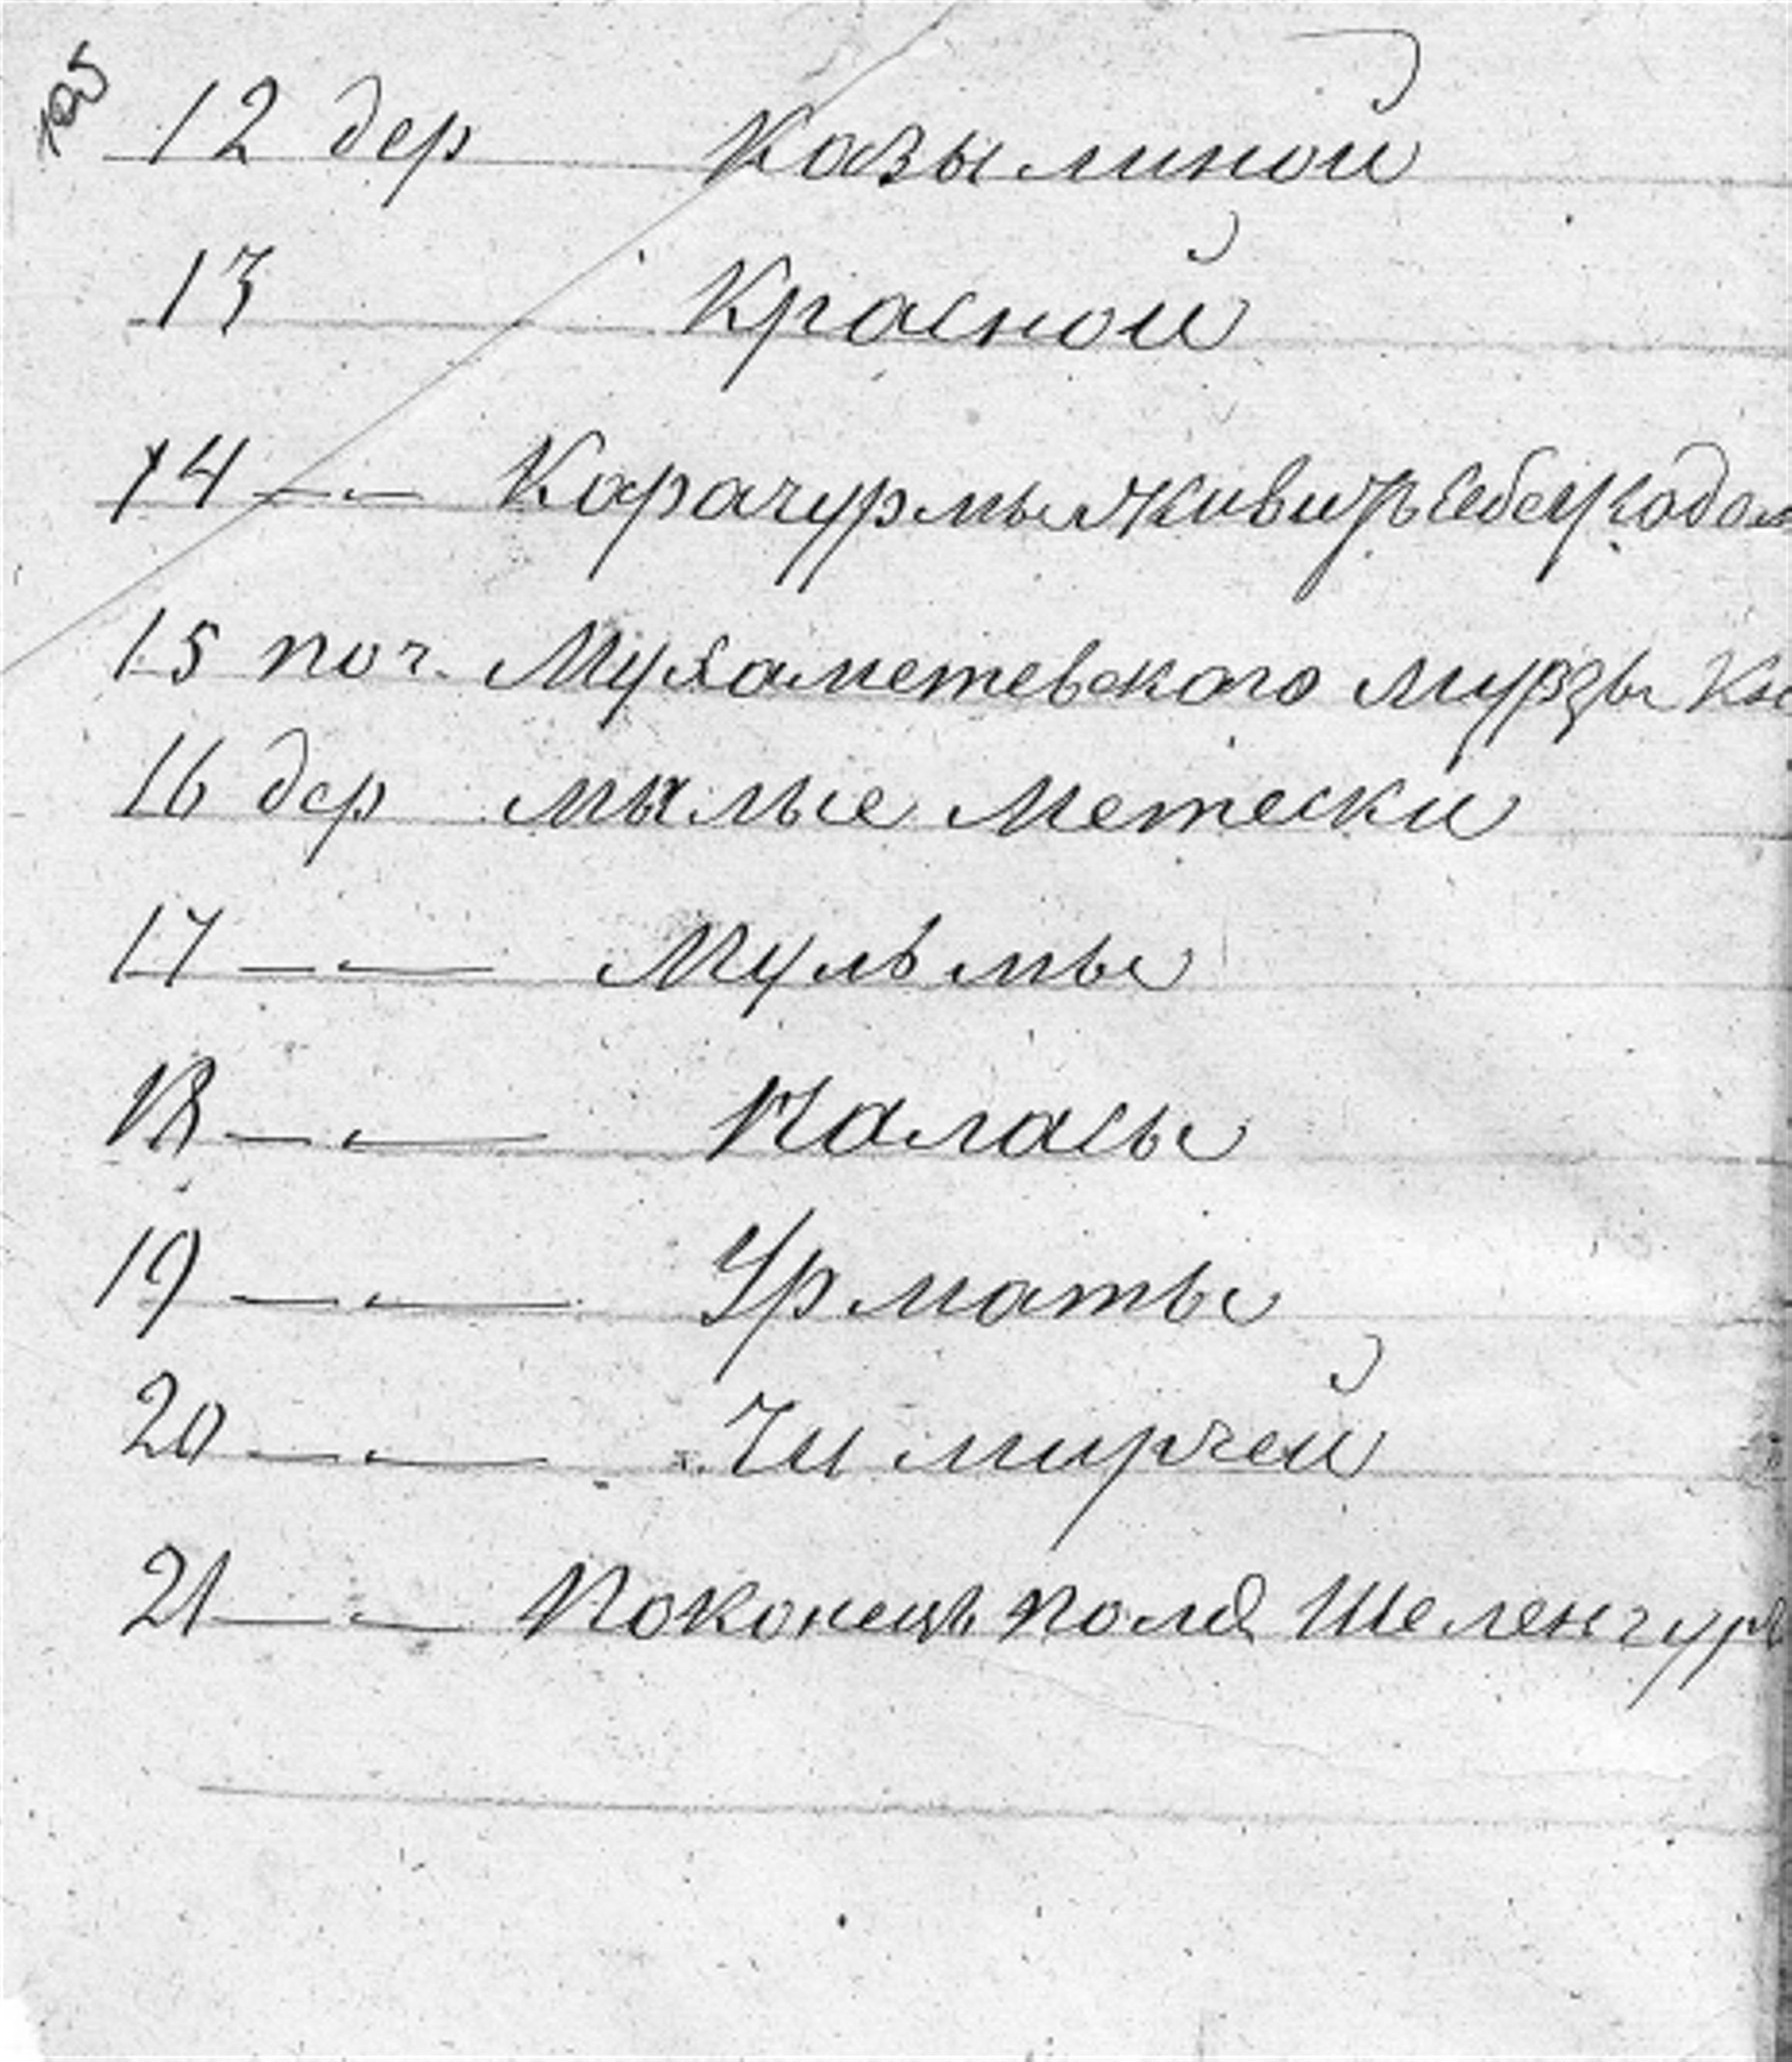 12 дер Казылиной
13 Красной
14 — — Карачурмы
15 поч. Мухаметевского мурзы
16 дер малые Метески
17 — — Мульмы
18 — — Каласы
19 — — Урматы
20 — — Чимирчей
21 — — Поконецъ поля Шеленгур